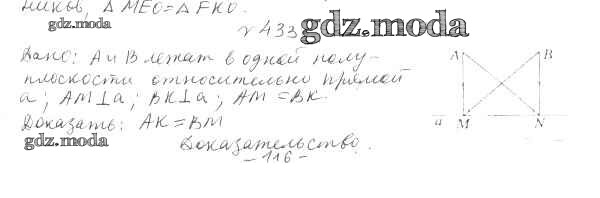 ников, △MEO=△FKO.
gdz.moda
№433 gdz.moda
Дано: А и В лежат в одной полу-
плоскости относительно прямой
а; AM⊥a; BK⊥a; AM=BK.
Доказать: AK=BM
gdz.moda
Доказательство.
-116-
A B
a M N